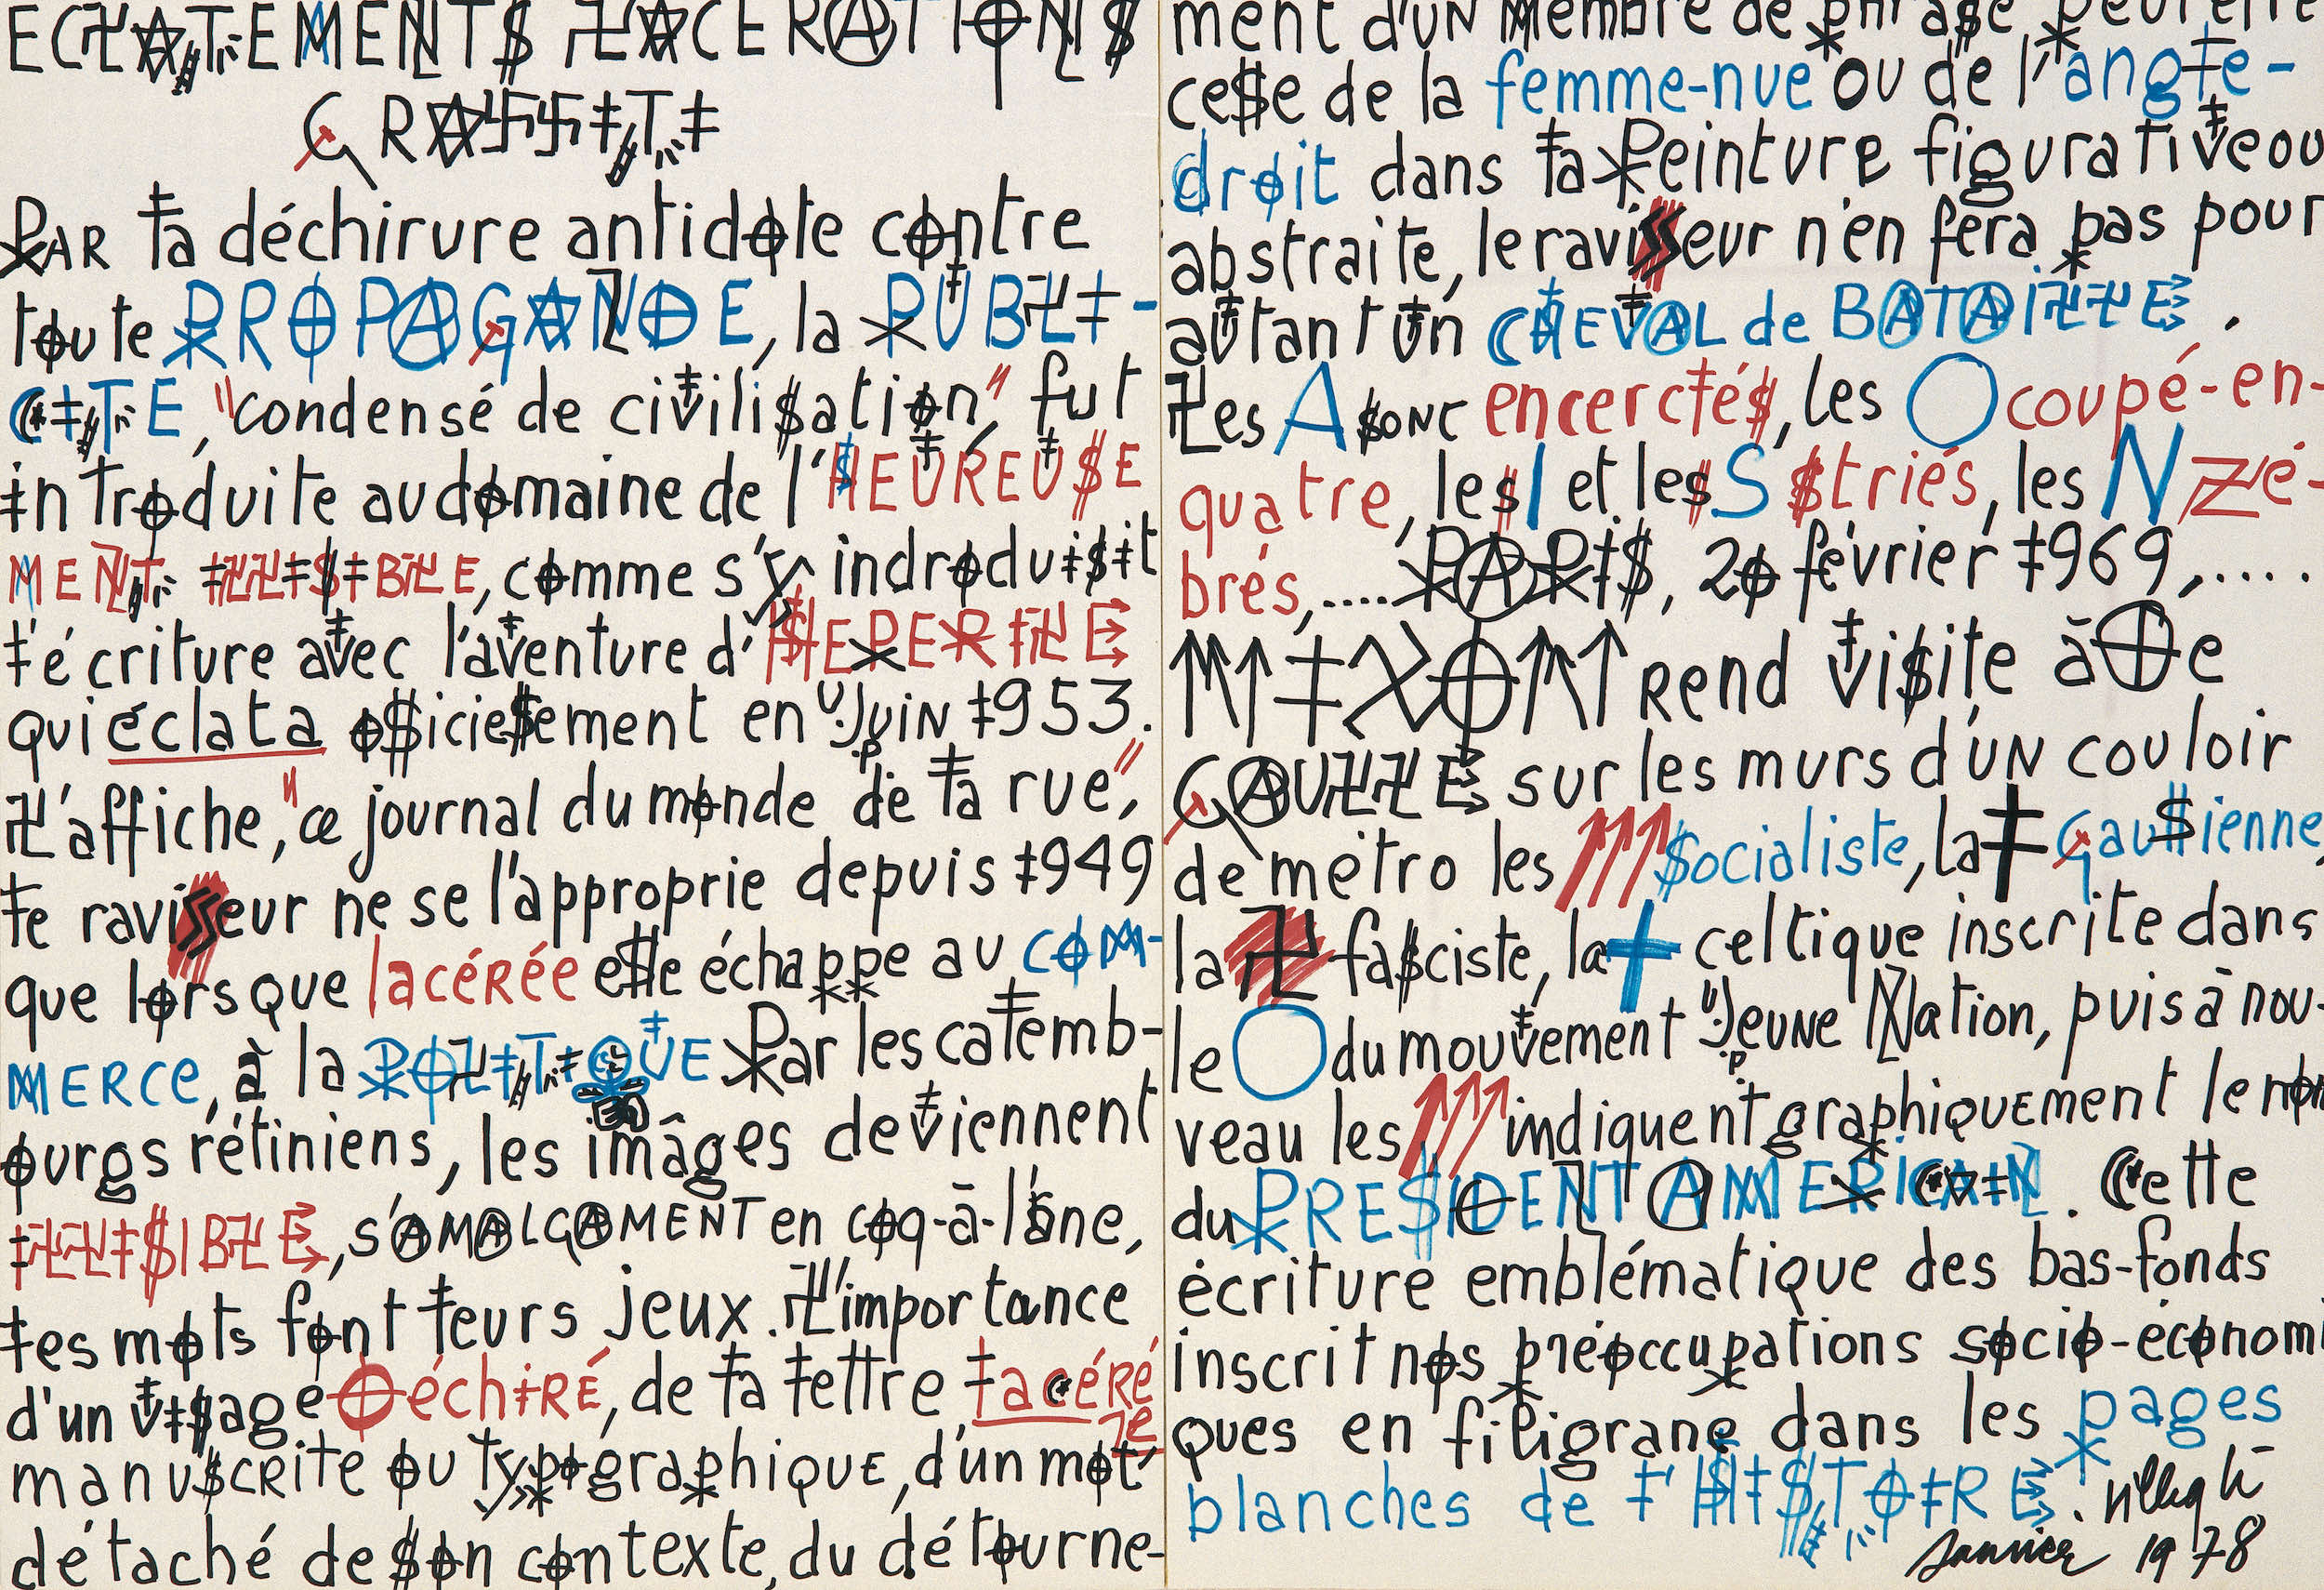 ECLATEMENTS LACERATIONS
GRAFFITI
PAR la déchirure antidote contre
toute PROPAGANDE, la PUBLI-
CITE, "condensé de civilisation" fut
introduite au domaine de l'HEUREUSE
MENT ILLISIBLE, comme s'y indroduisit
l'écriture avec l'aventure d'HEPERILE
qui éclata officiellement en Juin 1953.
L'affiche, "ce journal du monde de la rue",
le ravisseur ne se l'approprie depuis 1949
que lorsque lacérée elle échappe au COM-
MERCE, à la POLITIQUE Par les calemb-
ourgs rétiniens, les imâges deviennent
ILLISIBLE, s'AMALGAMENT en coq-à-l'âne,
les mots font leurs jeux. L'importance
d'un visage déchiRÉ, de la lettre lacéré
e
manuscrite ou typographique, d'un mot
détaché de son contexte, du détourne-
ment d'un Membre de phrase, peut être
celle de la femme-nue ou de l'angle-
droit dans la Peinture figurative ou
abstraite, le ravisseur n'en fera pas pour
autant un CHEVAL de BATAILLE.
Les A sont encerclés, les O coupé-en-
quatre, les I et les S striés, les N zé-
brés,.... PARIS, 20 février 1969,....
NIXON rend visite à De
GAULLE sur les murs d'un couloir
de métro les ↑↑↑ socialiste, la ‡ Gaullienne,
la 卐 fasciste, la + celtique inscrite dans
le O du mouvement Jeune Nation, puis à nou-
veau les ↑↑↑ indiquent graphiquement le nom
du PRESIDENT AMERICAIN. Cette
écriture emblématique des bas-fonds
inscrit nos préoccupations socio-économi
ques en filigrane dans les pages
blanches de l'HISTOIRE. Villeglé
Janvier 1978